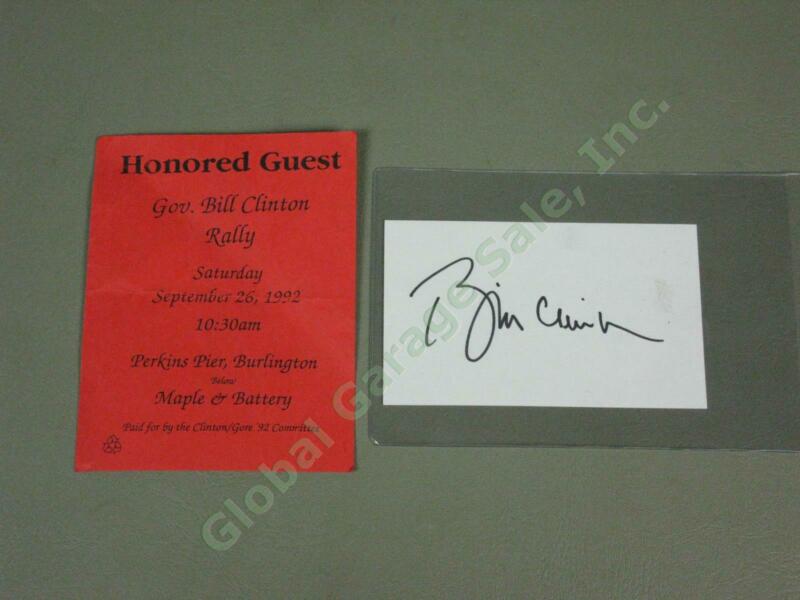 Honored Guest
Gov. Bill Clinton
Rally
Saturday
September 26, 1992
10:30am
Perkins Pier, Burlington
Below
Maple & Battery
Paid for by the Clinton/Gore '92 Committee
Bill Clinton
Global Garage Sale, Inc.